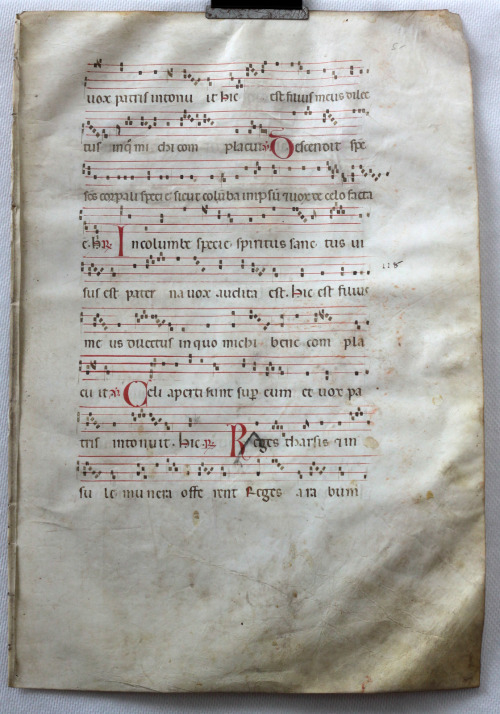 uox patris intonu it hic est filius meus dilec
tus inq̃ mi chi com placui ℣ Descendit spc̃
sc̃s corpali specie sicut colũba in ip̄sũ ⁊ uox de celo facta
e. hic ℞ In columbe specie spiritus sanc tus ui
sus est pater na uox audita est. hic est filius
me us dilectus in quo michi bene com pla
cu it ℣ Celi aperti sunt sup̱ eum et uox pa
tris intonuit. hic ℞ Reges tharsis ⁊ in
su le munera offe rent Reges ara bum